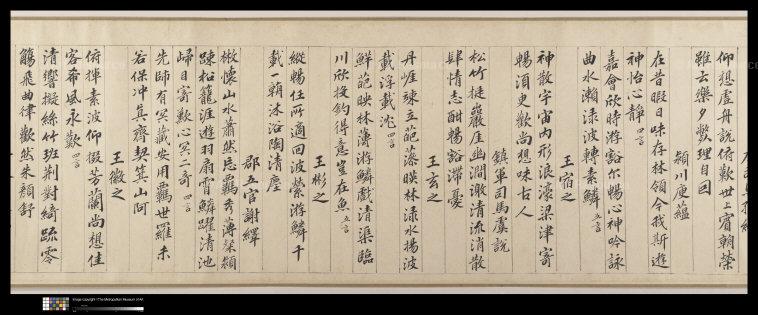 仰想虛舟說俯歎世上賓朝榮
雖云樂夕斃理自回
潁川庾蘊
在昔暇日味存林嶺今我斯遊
神怡心靜 四言
嘉會欣時游豁尔暢心神吟詠
曲水瀨淥波轉素鱗 五言
王宿之
神散宇宙內形浪濠梁津寄
暢須臾歡尚想味古人
鎮軍司馬虞說
松竹挺巖崖幽澗激清流消散
肆情志酣暢豁滯憂
王玄之
丹崖竦立葩藻暎林淥水揚波
載浮載沈 四言
鮮葩暎林薄游鱗戲清渠臨
川欣投釣得意豈在魚 五言
王彬之
縱暢任所適回波縈游鱗千
載一朝沐浴陶清塵
郡五官謝繹
散懷山水蕭然忘羈秀薄粲穎
疎松籠崖遊羽扇霄鱗躍清池
歸目寄歡心冥二奇 四言
先師有冥藏安用羈世羅未
若保沖真齊契箕山阿
王徽之
俯揮素波仰掇芳蘭尚想佳
客希風永歎 四言
清響擬絲竹班荊對綺疏零
觴飛曲津歡然朱顏舒
Image copyright ©The Metropolitan Museum of Art